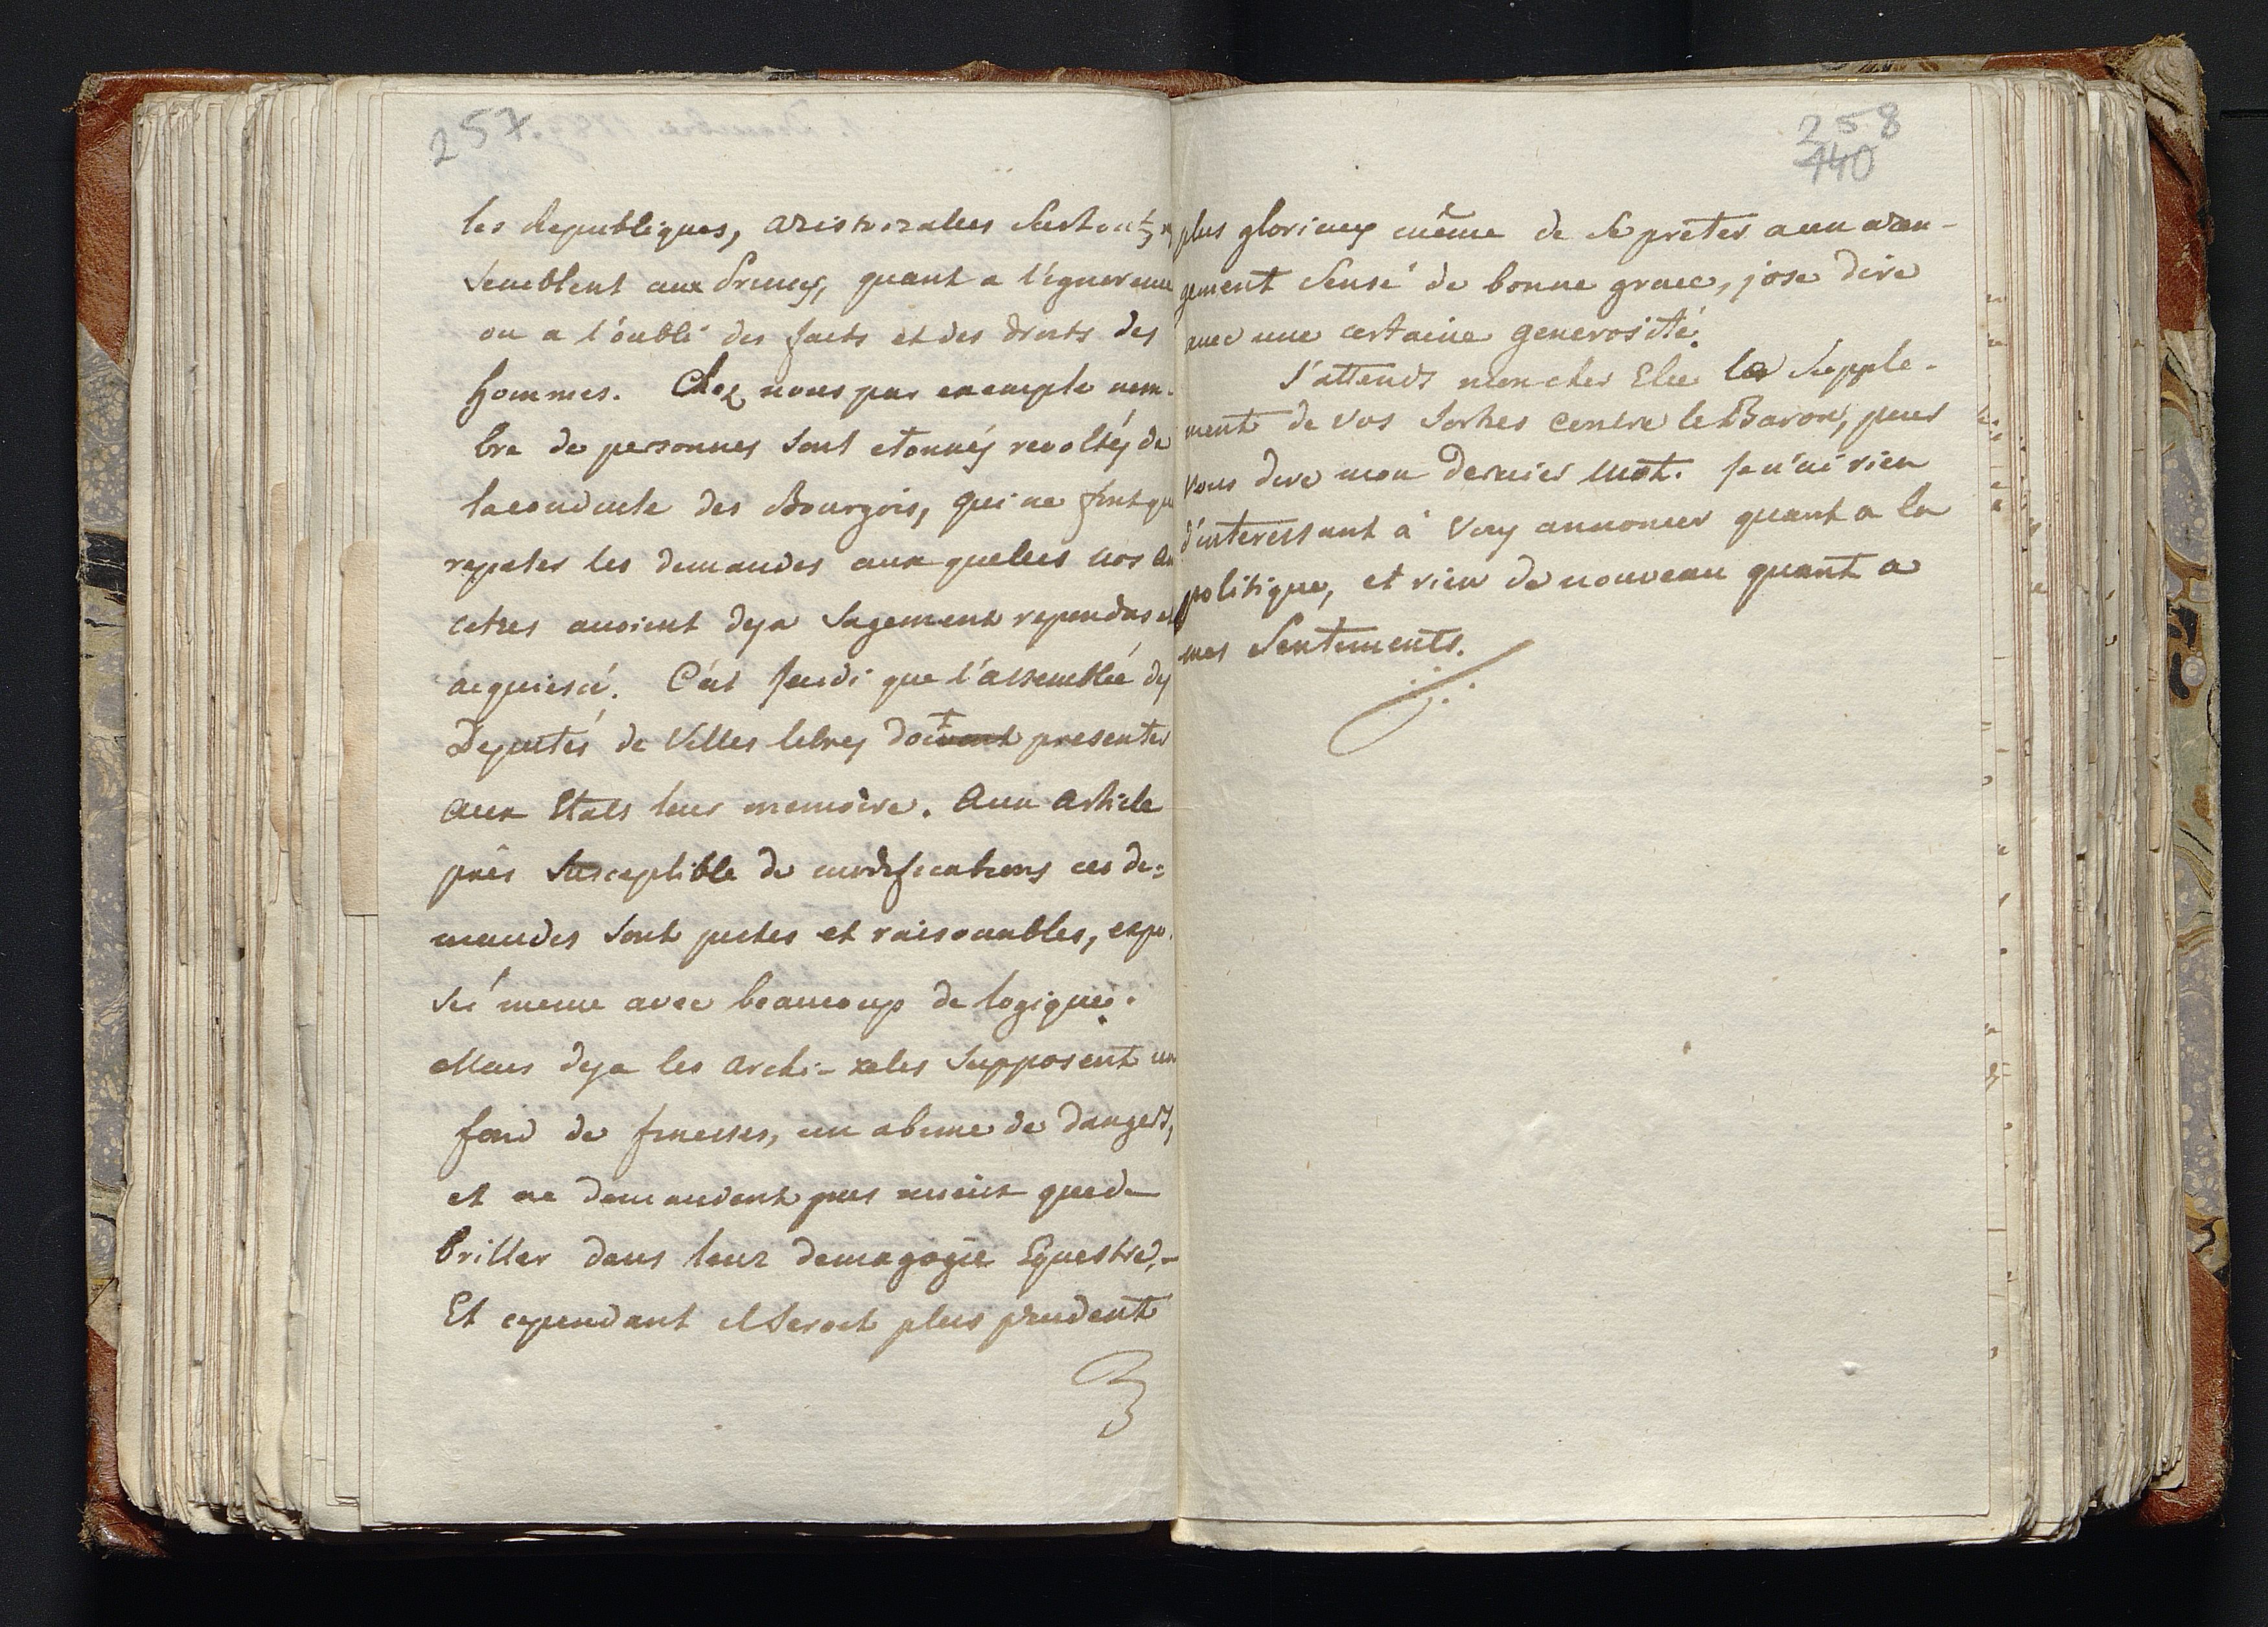 257.
les Republiques, aristocrates Surtout, re
semblent aux Princes, quant a l'ignorence
ou a l'oubli des faits et des droits des
hommes. Chez nous par exemple nom-
bre de personnes sont etonnés revoltés de
la conduite des Bourgois, qui ne font que
repeter les demandes aux quelles nos an
cetres avoient deja Sagement repondus et
acquiescé. C'est Jeudi que l'assemblée des
Deputés de Villes libres doit presenter
aux Etats leur memoire. A un Article
près Susceptible de modifications ces de=
mandes sont justes et raisonnables, expo-
sé meme avec beaucoup de logique.
Mais deja les archi-zeles Supposent un
fond de finesses, un abime de dangers,
et ne demandent pas mieux que de
briller dans leur demagogie Equestre,-
Et cependant il seroit plus prudent
258
140
plus glorieux même de se prêter a un aran-
gement Sensé de bonne grace, j'ose dire
avec une certaine generosité.
J'attends mon cher Elie le Supple-
ment de vos Sorties contre le Baron, pour
vous dire mon dernier mot. Je n'ai rien
d'interessant à vous annoncer quant a la
politique, et rien de nouveau quant a
mes Sentiments.